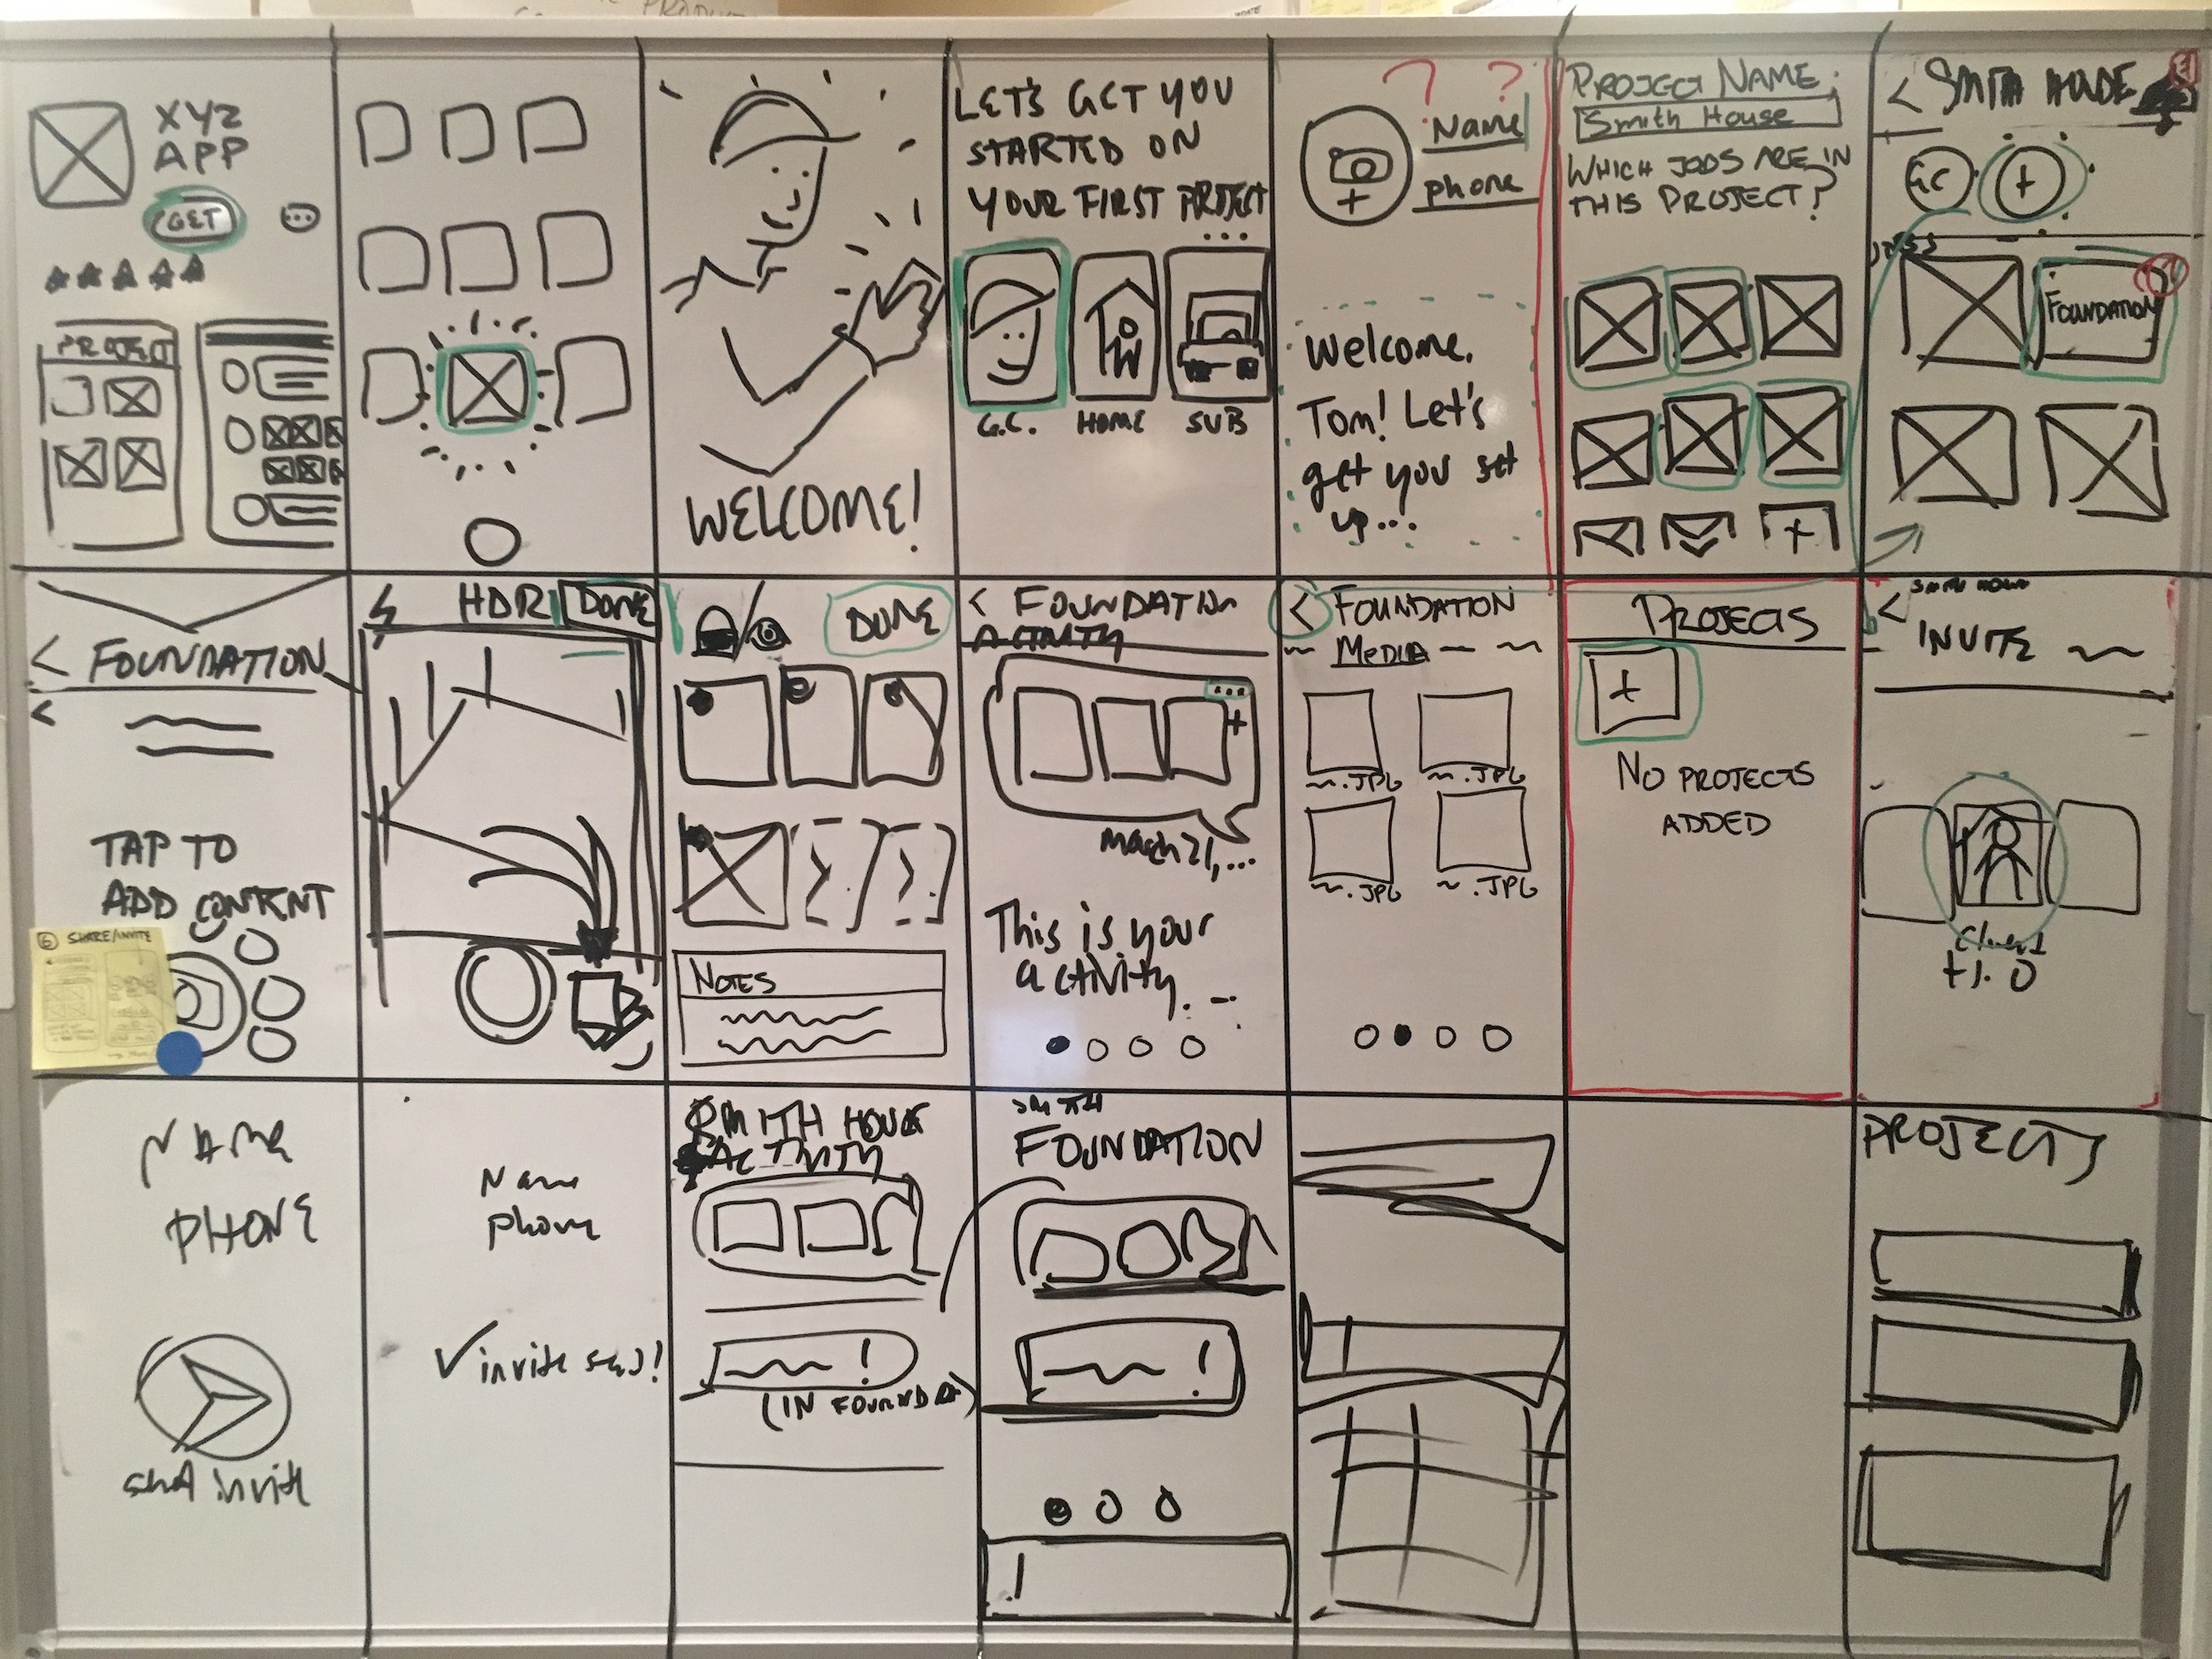 XYZ
APP
GET
PROJECT
WELCOME!
LET'S GET YOU
STARTED ON
YOUR FIRST PROJECT
...
G.C.
HOME
SUB
? ?
Name
phone
+
Welcome,
Tom! Let's
get you set
up...
PROJECT NAME:
Smith House
WHICH JOBS ARE IN
THIS PROJECT?
+
<
GC
+
FOUNDATION
< FOUNDATION
<
TAP TO
ADD CONTENT
6 SHARE/INVITE
HDR
DONE
DONE
NOTES
< FOUNDATION
ACTIVITY
...
+
This is your
activity.
< FOUNDATION
MEDIA
.JPG
.JPG
.JPG
.JPG
PROJECTS
+
NO PROJECTS
ADDED
<
INVITE
NAME
PHONE
send invite
Name
phone
✓ invite sent!
SMITH HOUSE
ACTIVITY
!
SMITH
FOUNDATION
!
PROJECTS